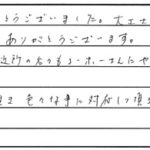 とうございました。大工さ
ありがとうございます。
近所の方々もユーホーさんにや
色々な事に対応して頂き